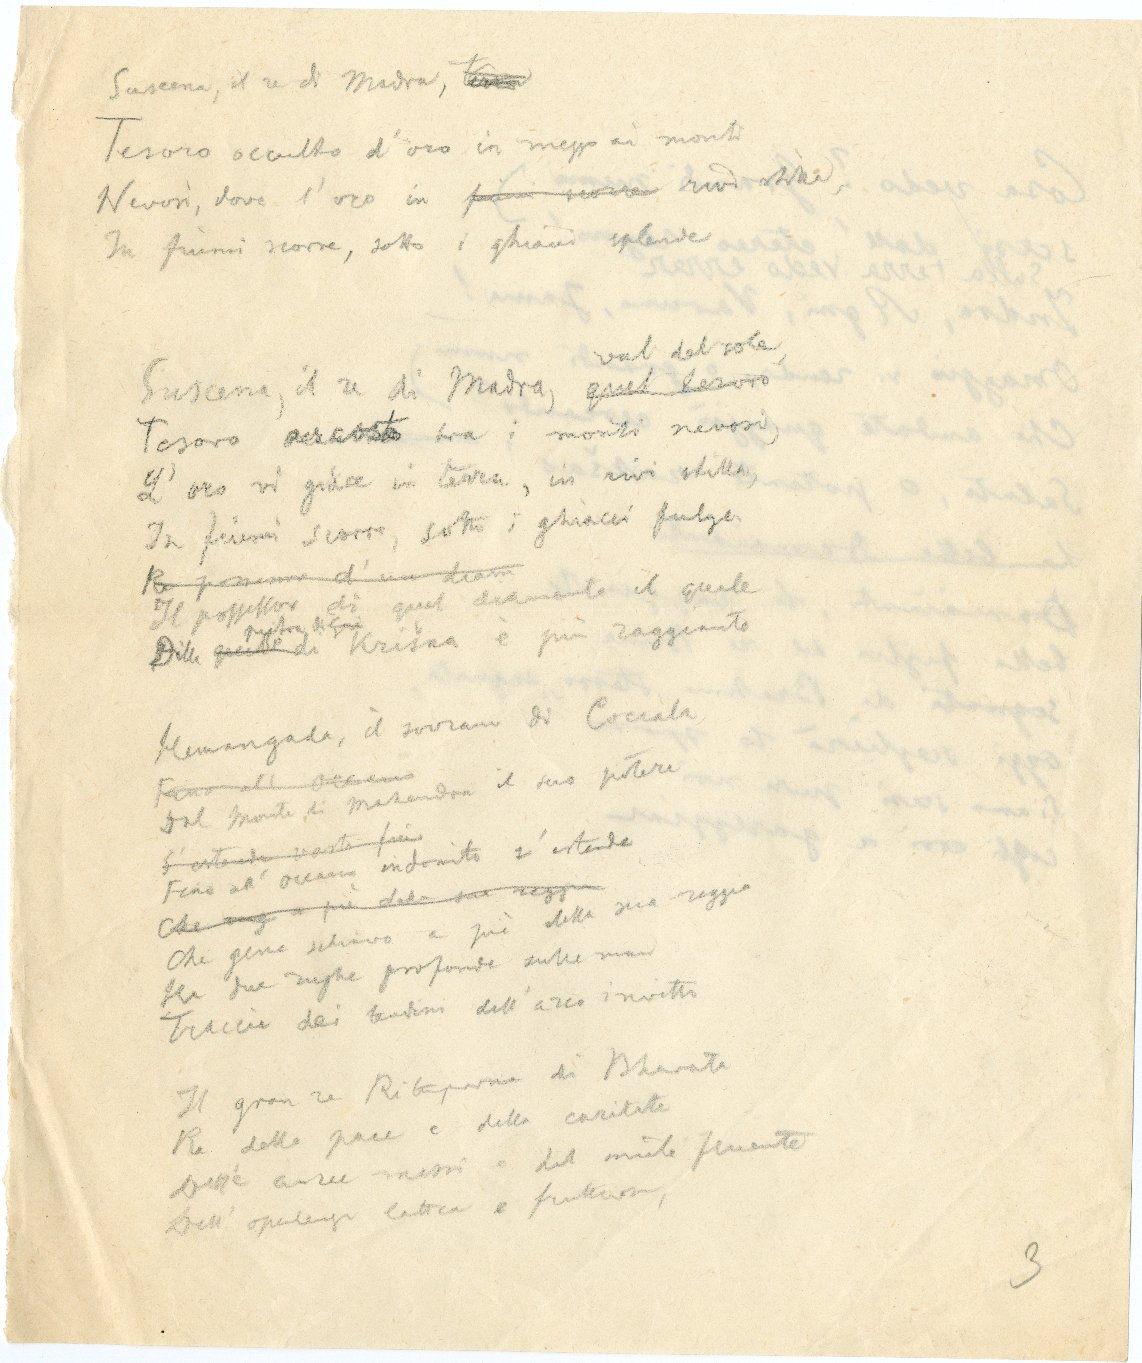 Suscena, il re di Madra,
Tesoro occulto d'oro in mezzo ai monti
Nevosi, dove l'oro in fiumi scorre rivi stilla,
In fiumi scorre, sotto i ghiacci splende
val del sole,
Suscena, il re di Madra, quel tesoro
Tesoro tra i monti nevosi,
L'oro vi giace in terra, in rivi stilla,
In fiumi scorre, sotto i ghiacci fulge
Re possessor d'un diam
Il possessor di quel diamante il quale
pietra di
Della quella di Krišna è più raggiante
Hemangada, il sovrano di Coccala
Fino all'oceano
Dal Monte di Mahendra il suo potere
S'estende vasto fin
Fino all'oceano indomito s'estende
Che a piè della sua reggia
Che geme schiavo a piè della sua reggia
Ha due rughe profonde sulle mani
Traccia dei tendini dell'arco invitto
Il gran re Rituparna di Bharata
Re della pace e della caritate
Delle auree messi e del miele fluente
Dell'opulenza lattea e fruttuosa,
3